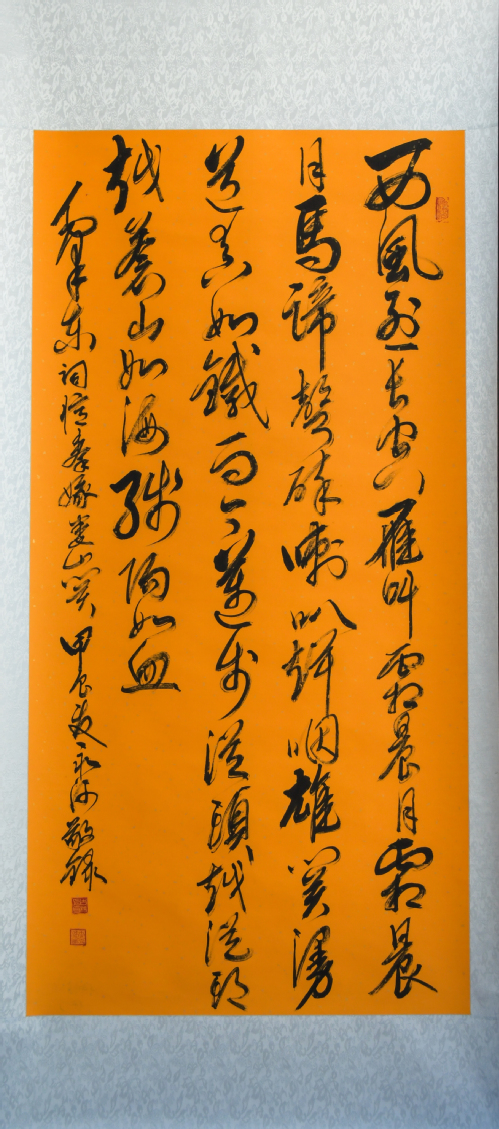 西風烈長空雁叫霜晨月霜晨
月馬蹄聲碎喇叭聲咽雄關漫
道真如鐵而今邁步從頭越從頭
越蒼山如海殘陽如血
毛澤東詞憶秦娥婁山關甲辰夏永敬錄